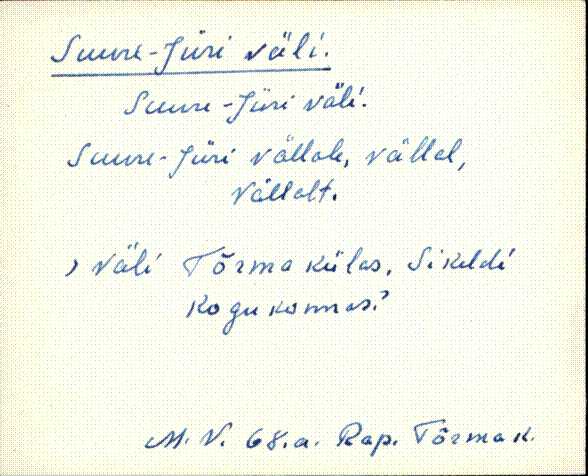 Suure-Jüri väli.
Suure-Jüri väli.
Suure-Jüri vällale, vällal,
vällalt.
, väli Tõrma külas, Sikeldi
kogukonnas.?
M. V. 68.a. Rap. Tõrma k.